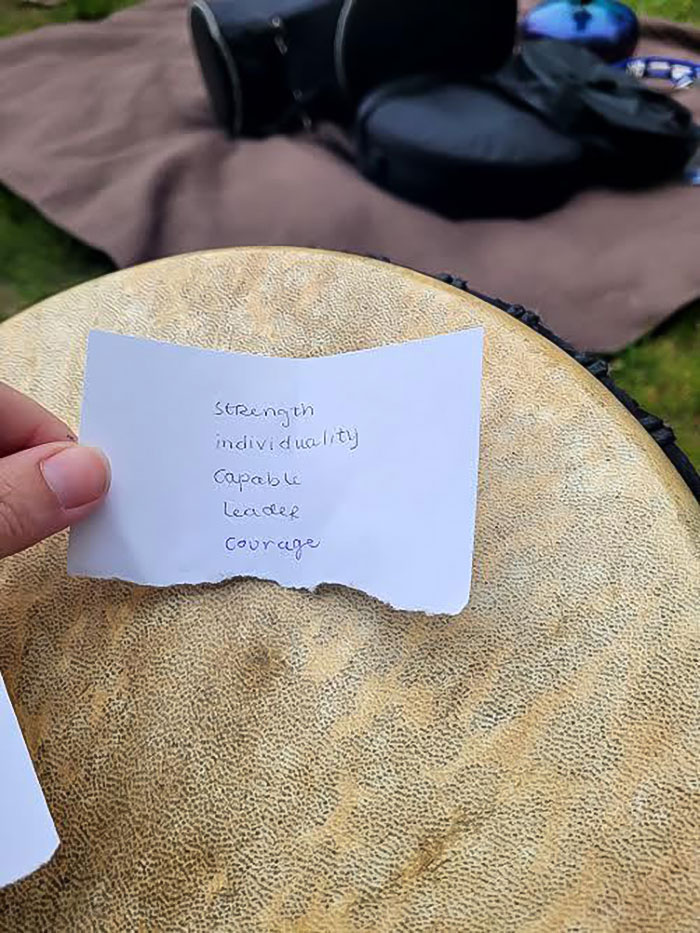 strength
individuality
capable
leader
courage